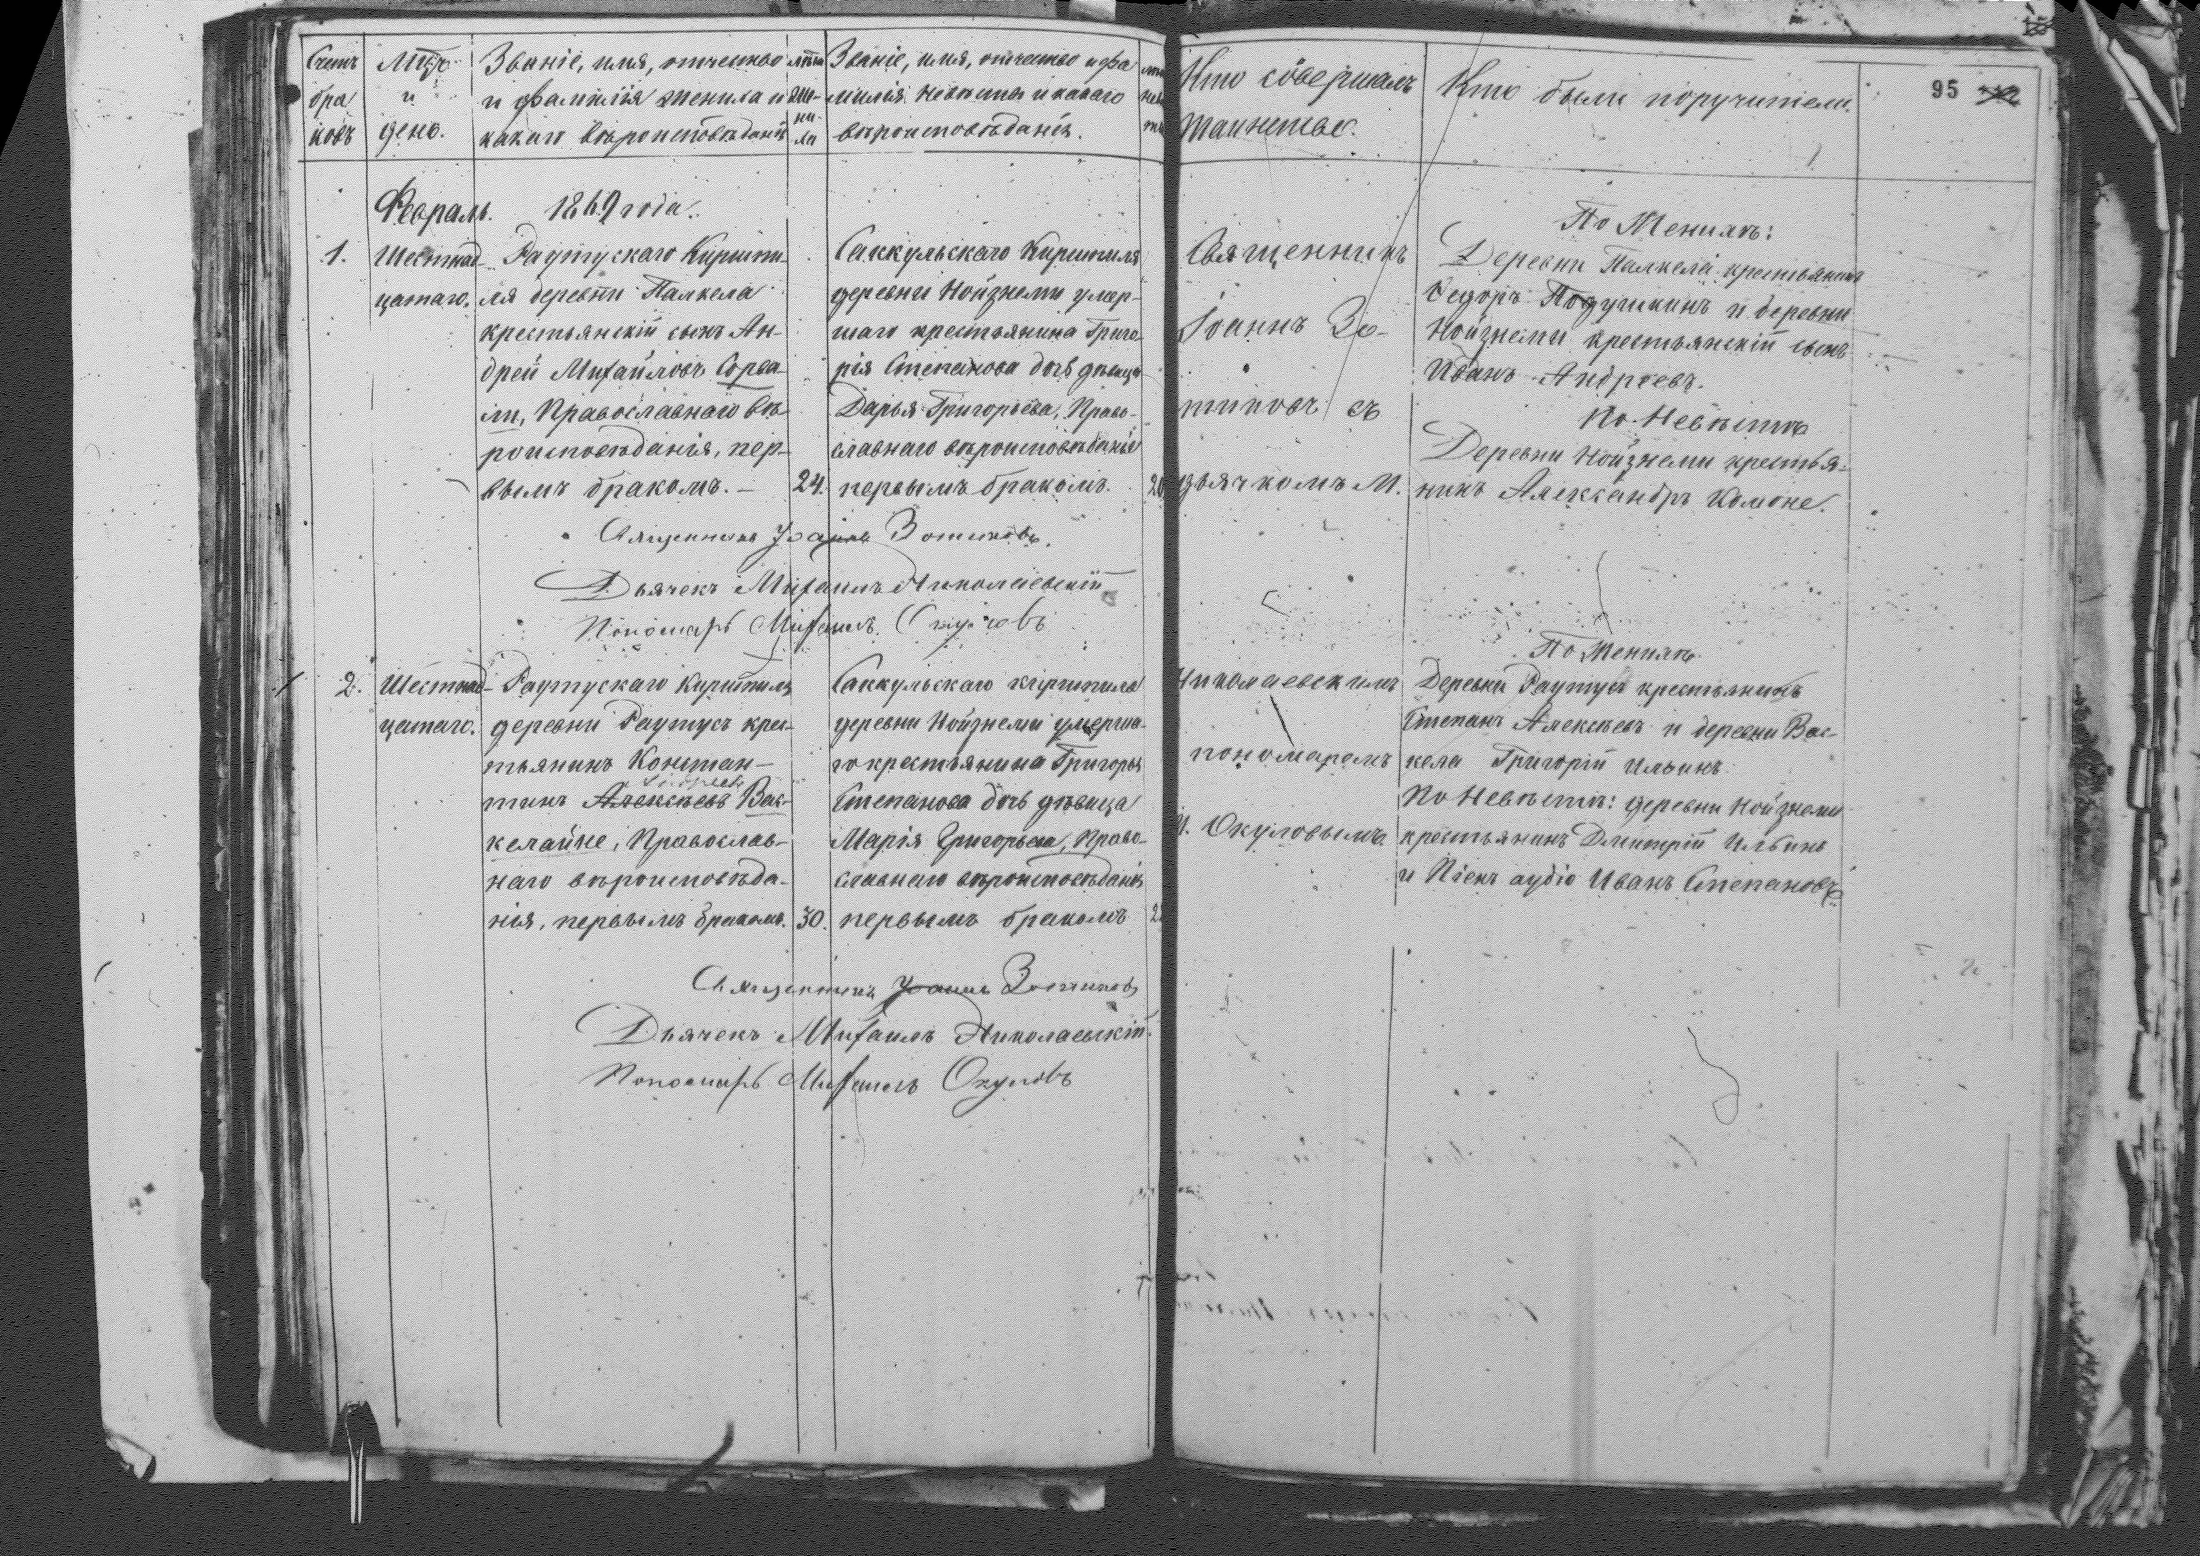 Счетъ бра ковъ
Мѣс. и день.
Званіе, имя, отчество и фамилія жениха и какаго вѣроисповѣданія
лѣта же- ни- ха
Званіе, имя, отчество и фа милія невѣсты и какаго вѣроисповѣданія.
Кто совершалъ таинство.
Кто были поручители.
95
Февраль. 1869 года.
1.
Шестнад-
цатаго.
Раутускаго Киршпи-
ля деревни Палкела
крестьянскій сынъ Ан-
дрей Михайловъ Сорва-
ли, Православнаго вѣ-
роисповѣданія, пер-
вымъ бракомъ. —
24.
Саккульскаго Киршпиля
деревни Нойзнеми умер-
шаго крестьянина Григо-
рія Степанова дочь дѣвица
Дарья Григорьева, Право-
славнаго вѣроисповѣданія
первымъ бракомъ.
20
Священникъ
Іоаннъ Зо-
тиковъ съ
дьячкомъ М.
По Женихѣ:
Деревни Палкела крестьянинъ
Ѳедоръ Подушкинъ и деревни
Нойзнеми крестьянскій сынъ
Иванъ Андреевъ.
По Невѣстѣ
Деревни Нойзнеми крестья-
нинъ Александръ Комоне.
Священникъ Іоаннъ Зотиковъ.
Дьячекъ Михаилъ Николаевскій
Пономарь Михаилъ Окуловъ
2.
Шестнад-
цатаго.
Раутускаго Киршпиля
деревни Раутусъ крес-
тьянинъ Констан-
тинъ Алексѣевъ Вас-
келайне, Православ-
наго вѣроисповѣда-
нія, первымъ бракомъ.
30.
Саккульскаго киршпиля
деревни Нойзнеми умерша-
го крестьянина Григорья
Степанова дочь дѣвица
Марія Григорьева, Право-
славнаго вѣроисповѣданія
первымъ бракомъ
Николаевскимъ
пономаремъ
М. Окуловымъ.
По Женихѣ
Деревни Раутусъ крестьянинъ
Степанъ Алексѣевъ и деревни Вас-
кела Григорій Ильинъ
По Невѣстѣ: деревни Нойзнеми
крестьянинъ Дмитрій Ильинъ
и Иванъ Степановъ
Священникъ Іоаннъ Зотиковъ
Дьячекъ Михаилъ Николаевскій.
Пономарь Михаилъ Окуловъ